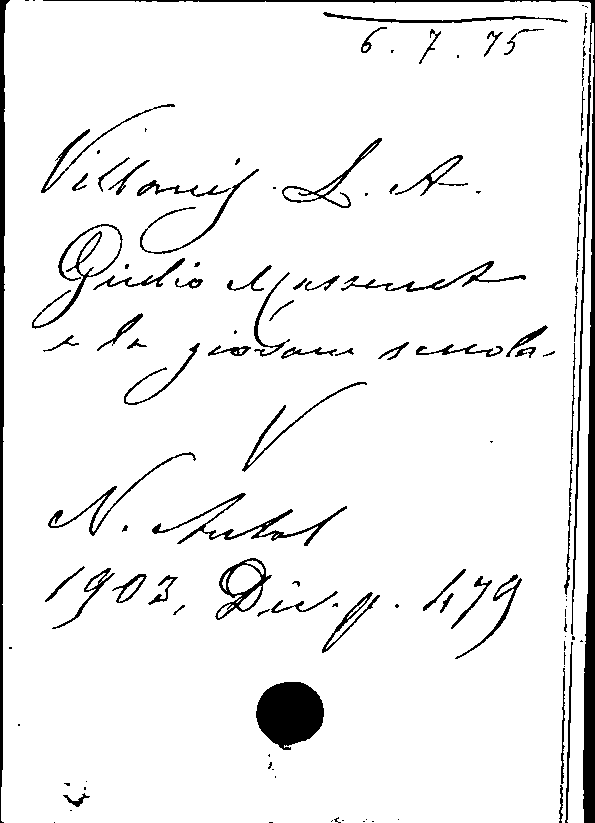 6.7.75
Villanis. L. A.
Giulio Massenet
e la giovane scuola.
V
N. Antol
1903, Dic. p. 479